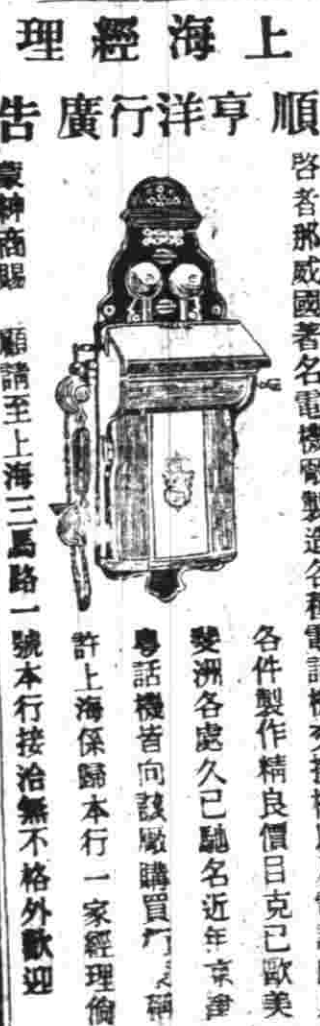 上海經理
順亨洋行廣告
啓者那威國著名電機廠製造各種電話機交換機
各件製作精良價目克己歐美
斐洲各處久已馳名近年京津
粵話機皆向該廠購買 稱
許上海係歸本行一家經理倘
蒙紳商賜顧請至上海三馬路一號本行接洽無不格外歡迎